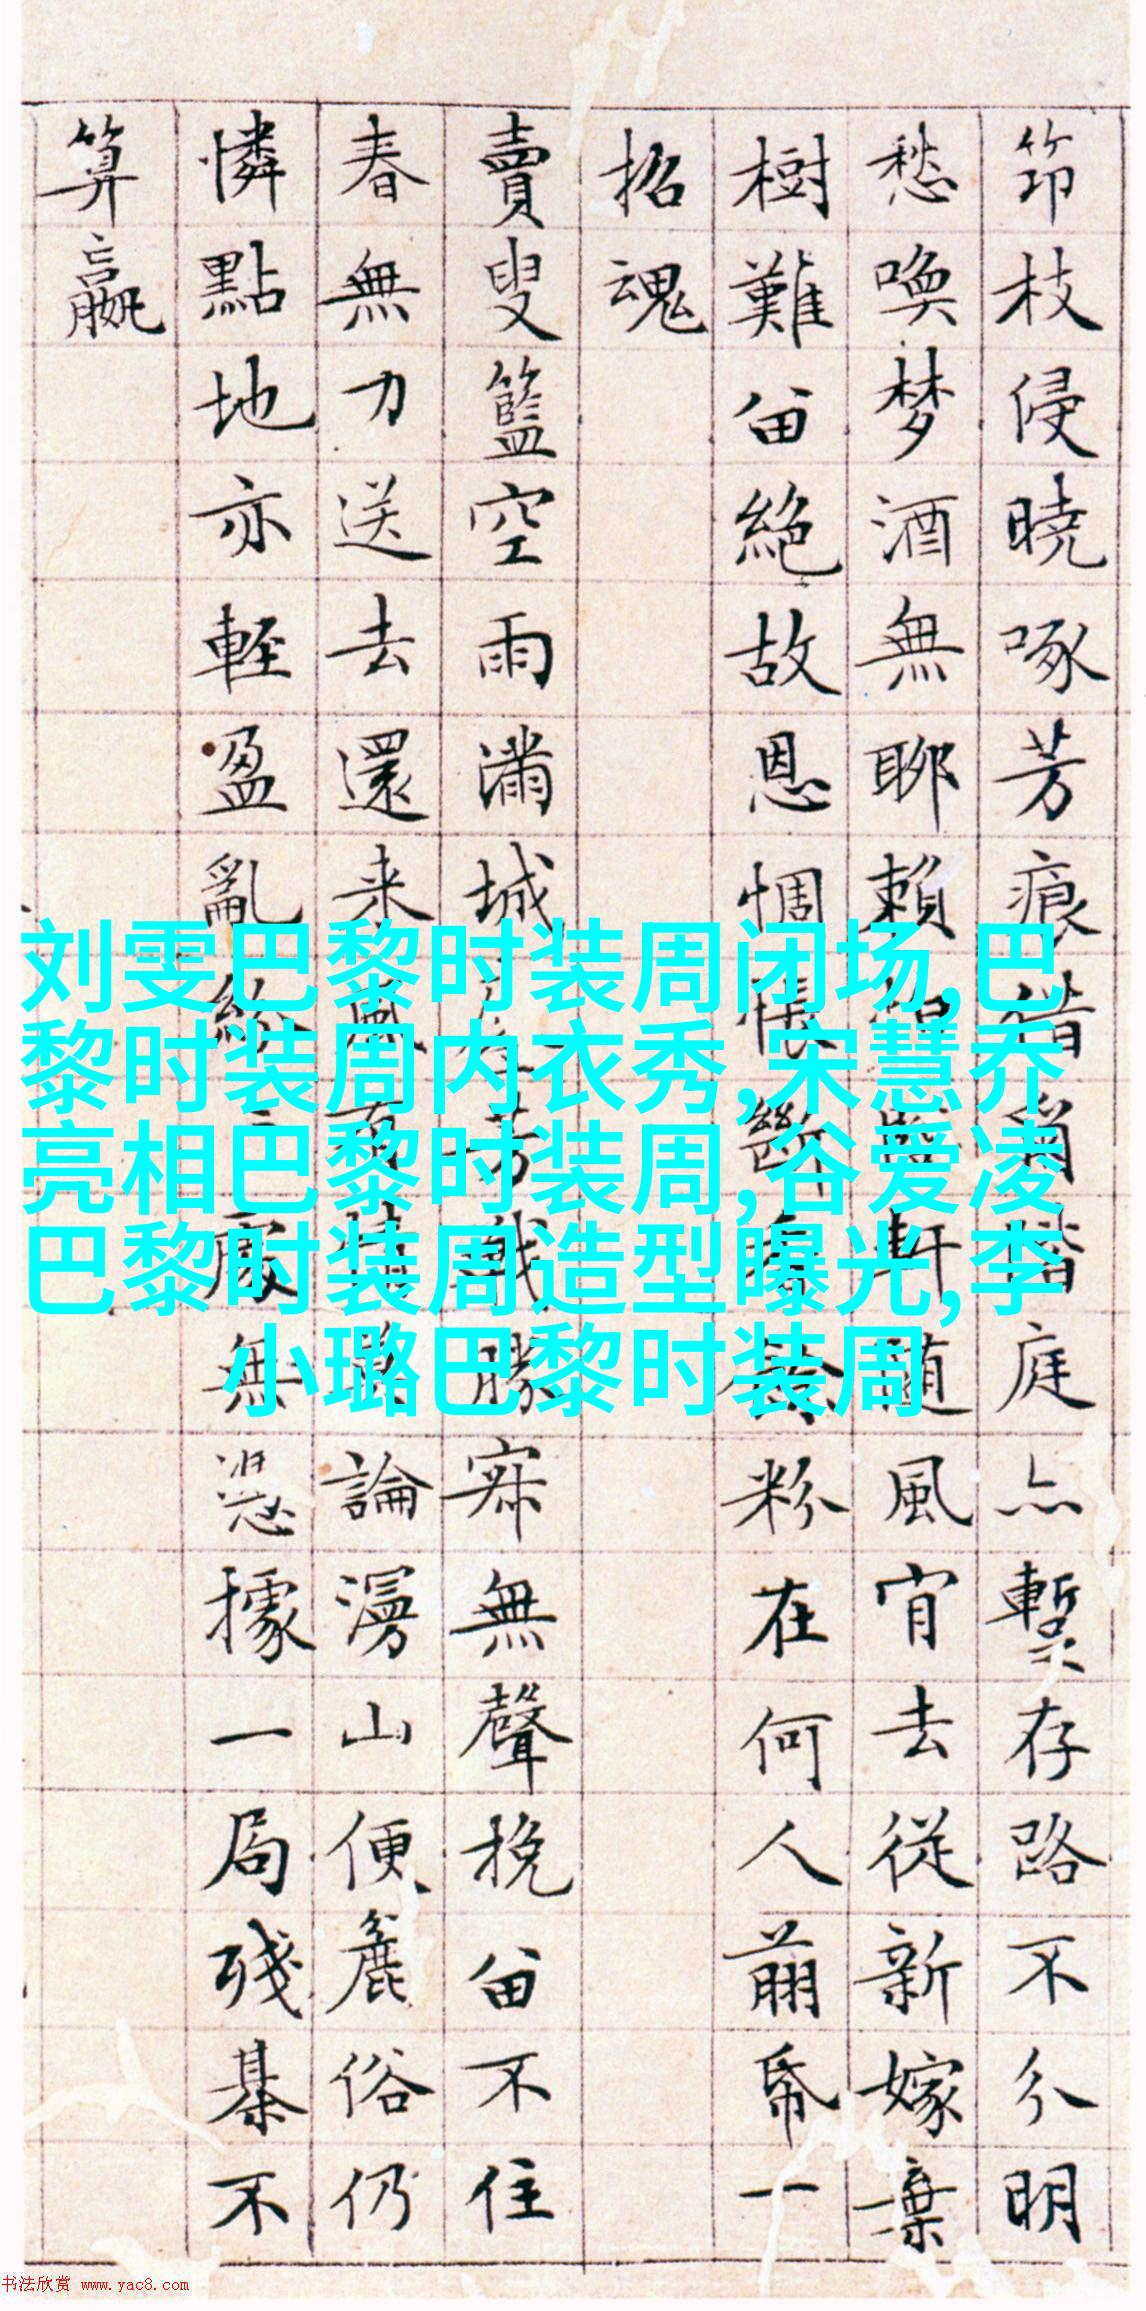 枝侵曉啄芳痕借階庭亦暫存路不分明
愁喚梦酒無聊賴軒随風宵去從新嫁棄
樹難畱絕故恩惆悵斷粉在何人前帋一
招魂
賣叟籃空雨滿城芳戰勝寂無聲挽畱不住
春無力送去還来風雨論漫山便麄俗仍
憐點地亦輕盈亂紛處無憑據一局殘棊不
算贏
刘雯巴黎时装周闭场,巴
黎时装周内衣秀,宋慧乔
亮相巴黎时装周,谷爱凌
巴黎时装周造型曝光,李
小璐巴黎时装周
书法欣赏 www.yac8.com